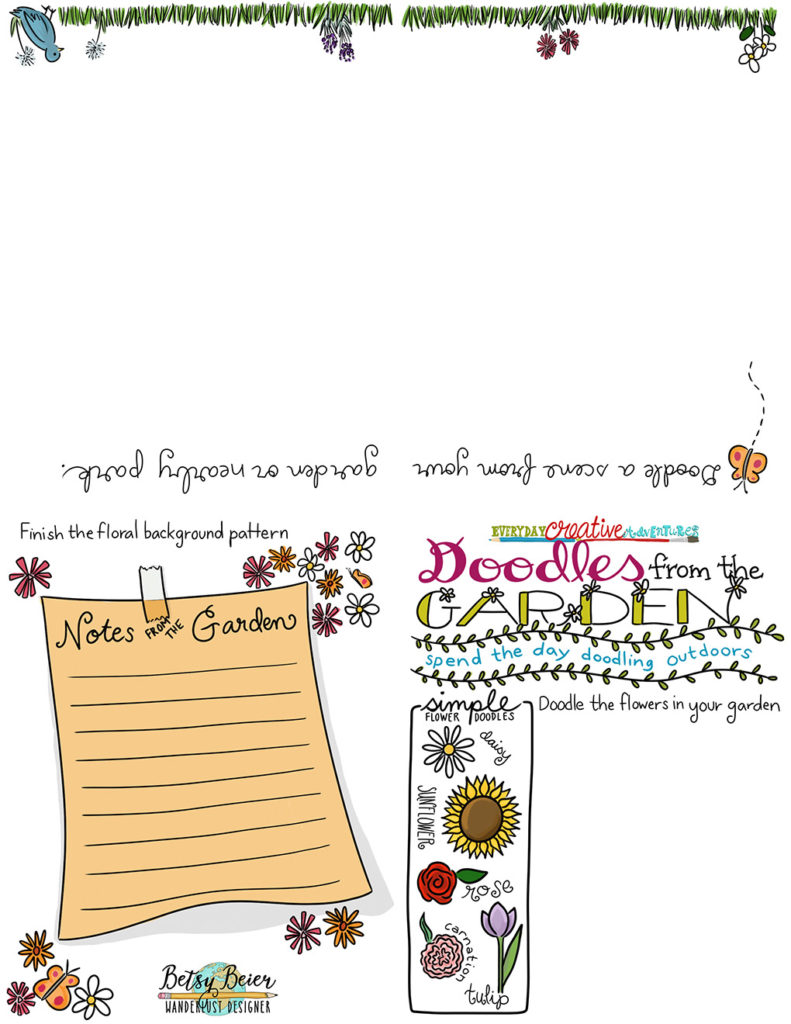 Doodle a scene from your
garden or nearby park.
Finish the floral background pattern
Notes FROM THE Garden
Betsy Beier
WANDERLUST DESIGNER
EVERYDAY creative ADVENTURES
Doodles from the
GARDEN
spend the day doodling outdoors
simple
FLOWER DOODLES
Doodle the flowers in your garden
daisy
SUNFLOWER
rose
carnation
tulip